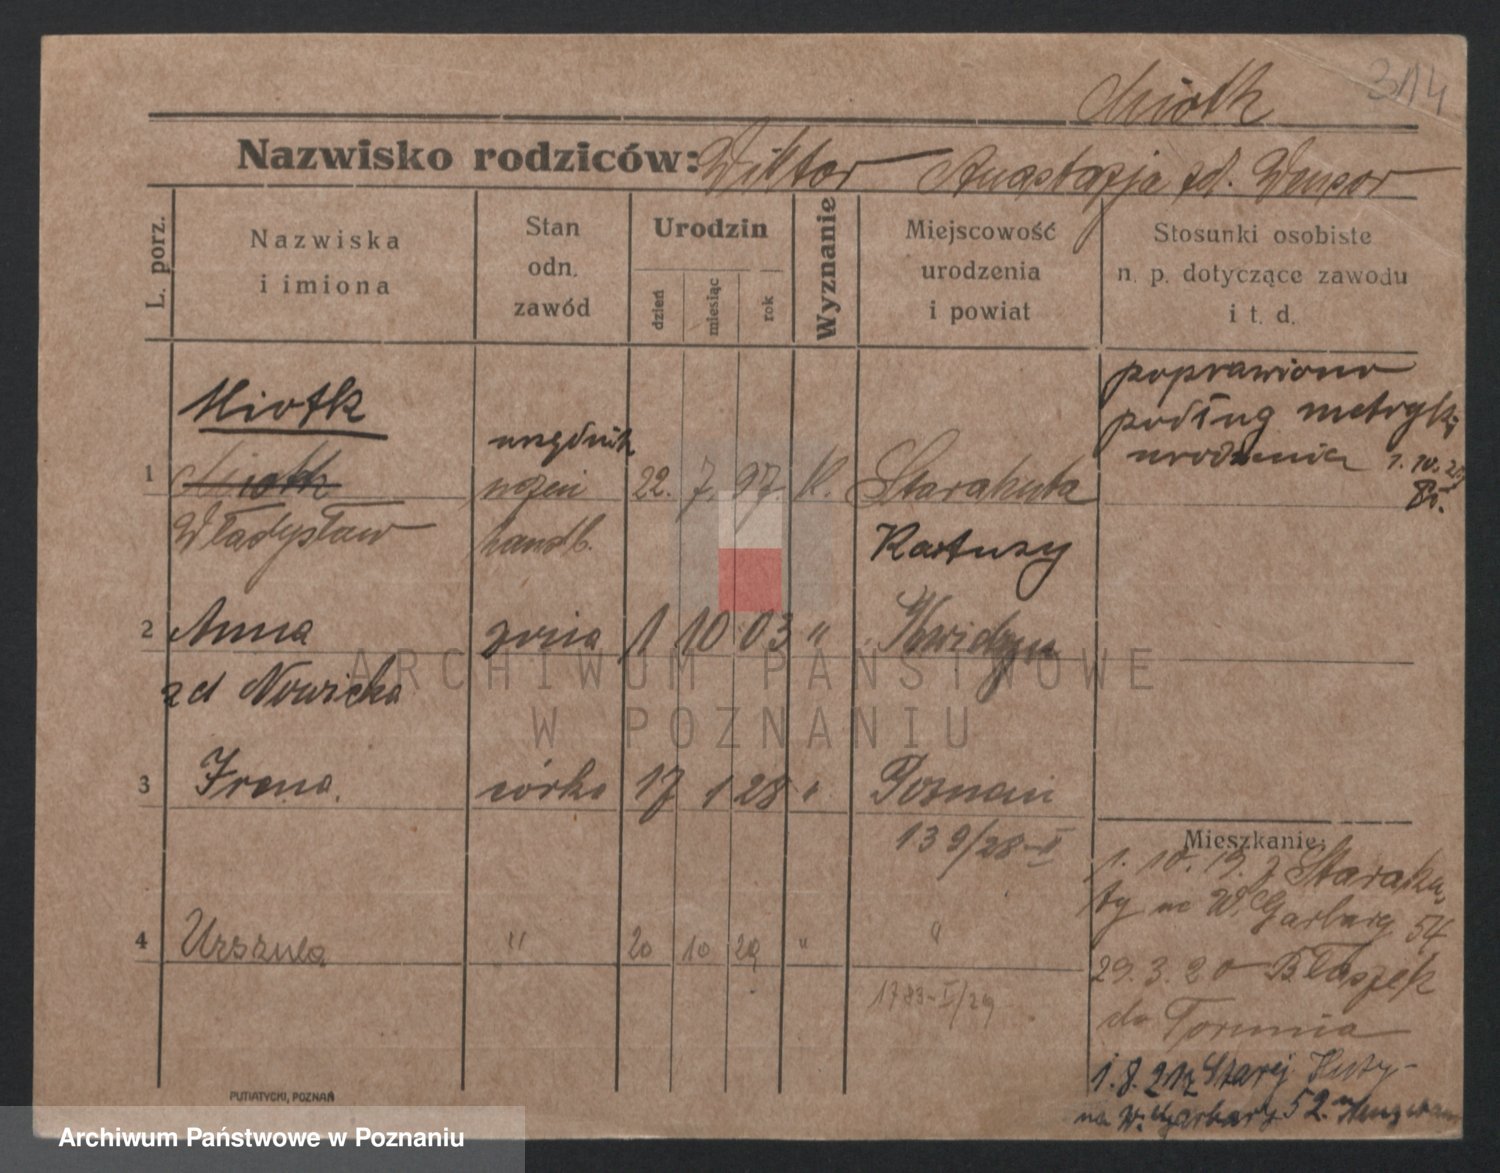 314
Miotk
Nazwisko rodziców: Wiktor Anastazja zd.
L. porz.
Nazwiska i imiona
Stan odn. zawód
Urodzin
dzień
miesiąc
rok
Wyznanie
Miejscowość urodzenia i powiat
Stosunki osobiste n. p. dotyczące zawodu i t. d.
poprawiono
podług metryki
urodzenia 1. 10. 29
Miotk
urzędnik
1 Miotk 22. 7. 97 K. Starahuta
Władysław handl. Kartuzy
2 Anna żona 1 10 03 " Kwidzyn
zd Nowicka
ARCHIWUM PAŃSTWOWE
W POZNANIU
3 Irena. córka 17 1 28 " Poznań
139/28-II
Mieszkanie:
1. 10. 19. z Starahu
ty na W. Garbary 54
4 Urszula " 20 10 29 " "
1783-I/29
29. 3. 20
do Torunia
1. 8. 21 z Starej Huty
na W. Garbary 52
PUTIATYCKI, POZNAŃ
Archiwum Państwowe w Poznaniu